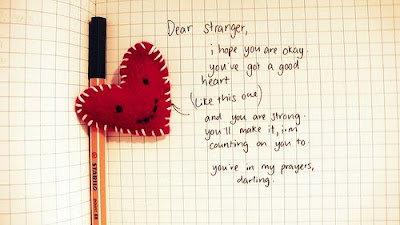 Dear stranger,
i hope you are okay.
you've got a good
heart
(like this one)
and you are strong.
you'll make it, i'm
counting on you to.
you're in my prayers,
darling.
STABILO